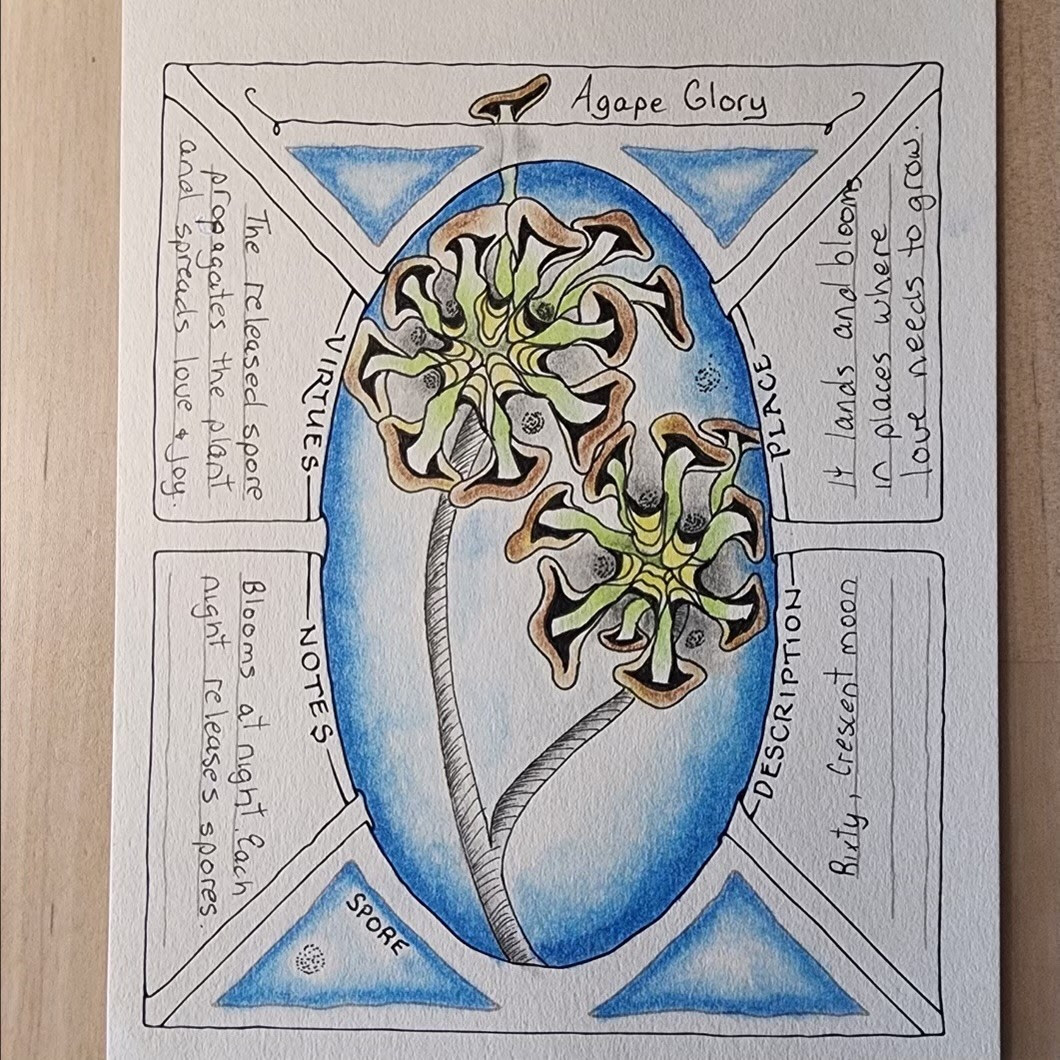 Agape Glory
VIRTUES
The released spore
propagates the plant
and spreads love & joy.
PLACE
It lands and blooms
in places where
love needs to grow.
NOTES
Blooms at night. Each
night releases spores.
DESCRIPTION
Rixty, Crescent moon
SPORE